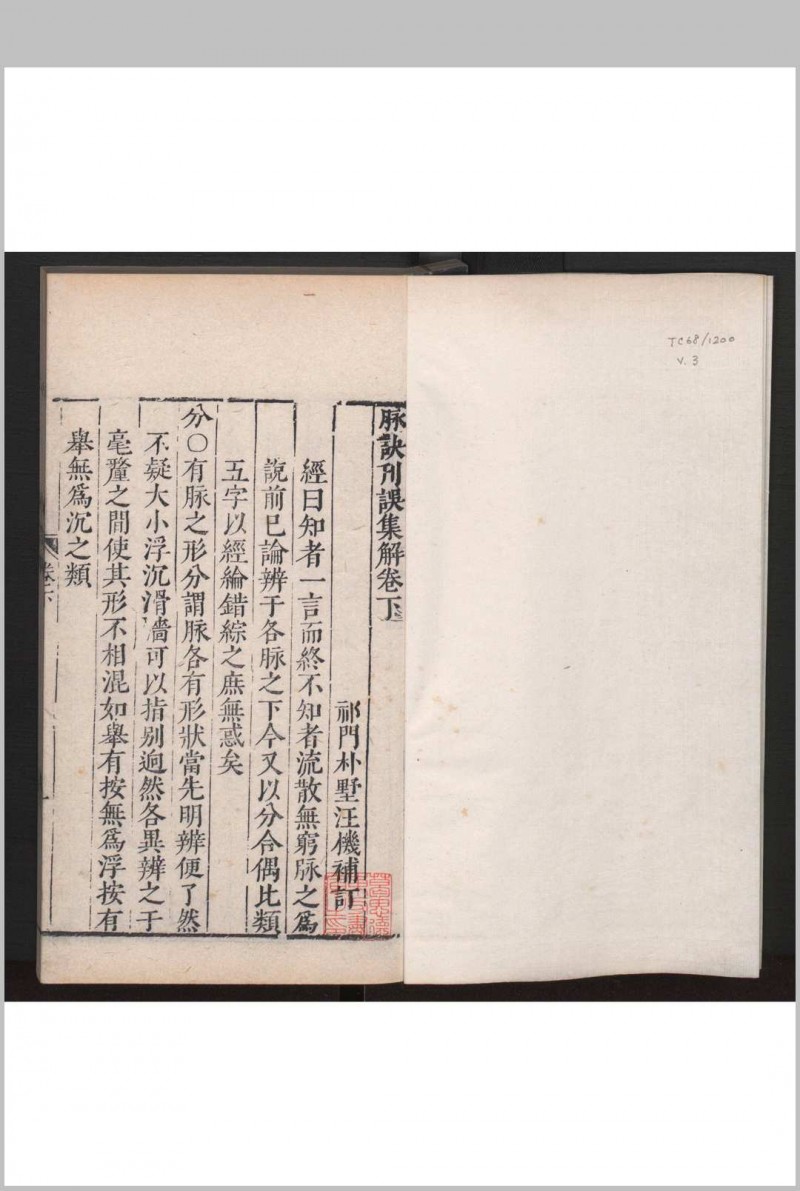 TC68/1200
V. 3
脉訣刋誤集解卷下
祁門朴墅汪機補訂
經曰知者一言而終不知者流散無窮脉之爲
說前巳論辨于各脉之下今又以分合偶比類
五字以經綸錯綜之庶無惑矣
分〇有脉之形分謂脉各有形狀當先明辨便了然
不疑大小浮沉滑濇可以指别逈然各異辨之于
毫釐之間使其形不相混如舉有按無爲浮按有
舉無爲沉之類
卷下